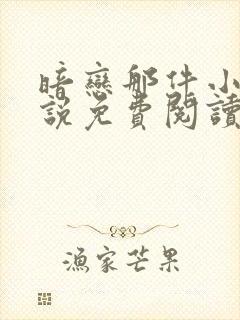 暗戀那件小
說免費閱讀
漁家芒果